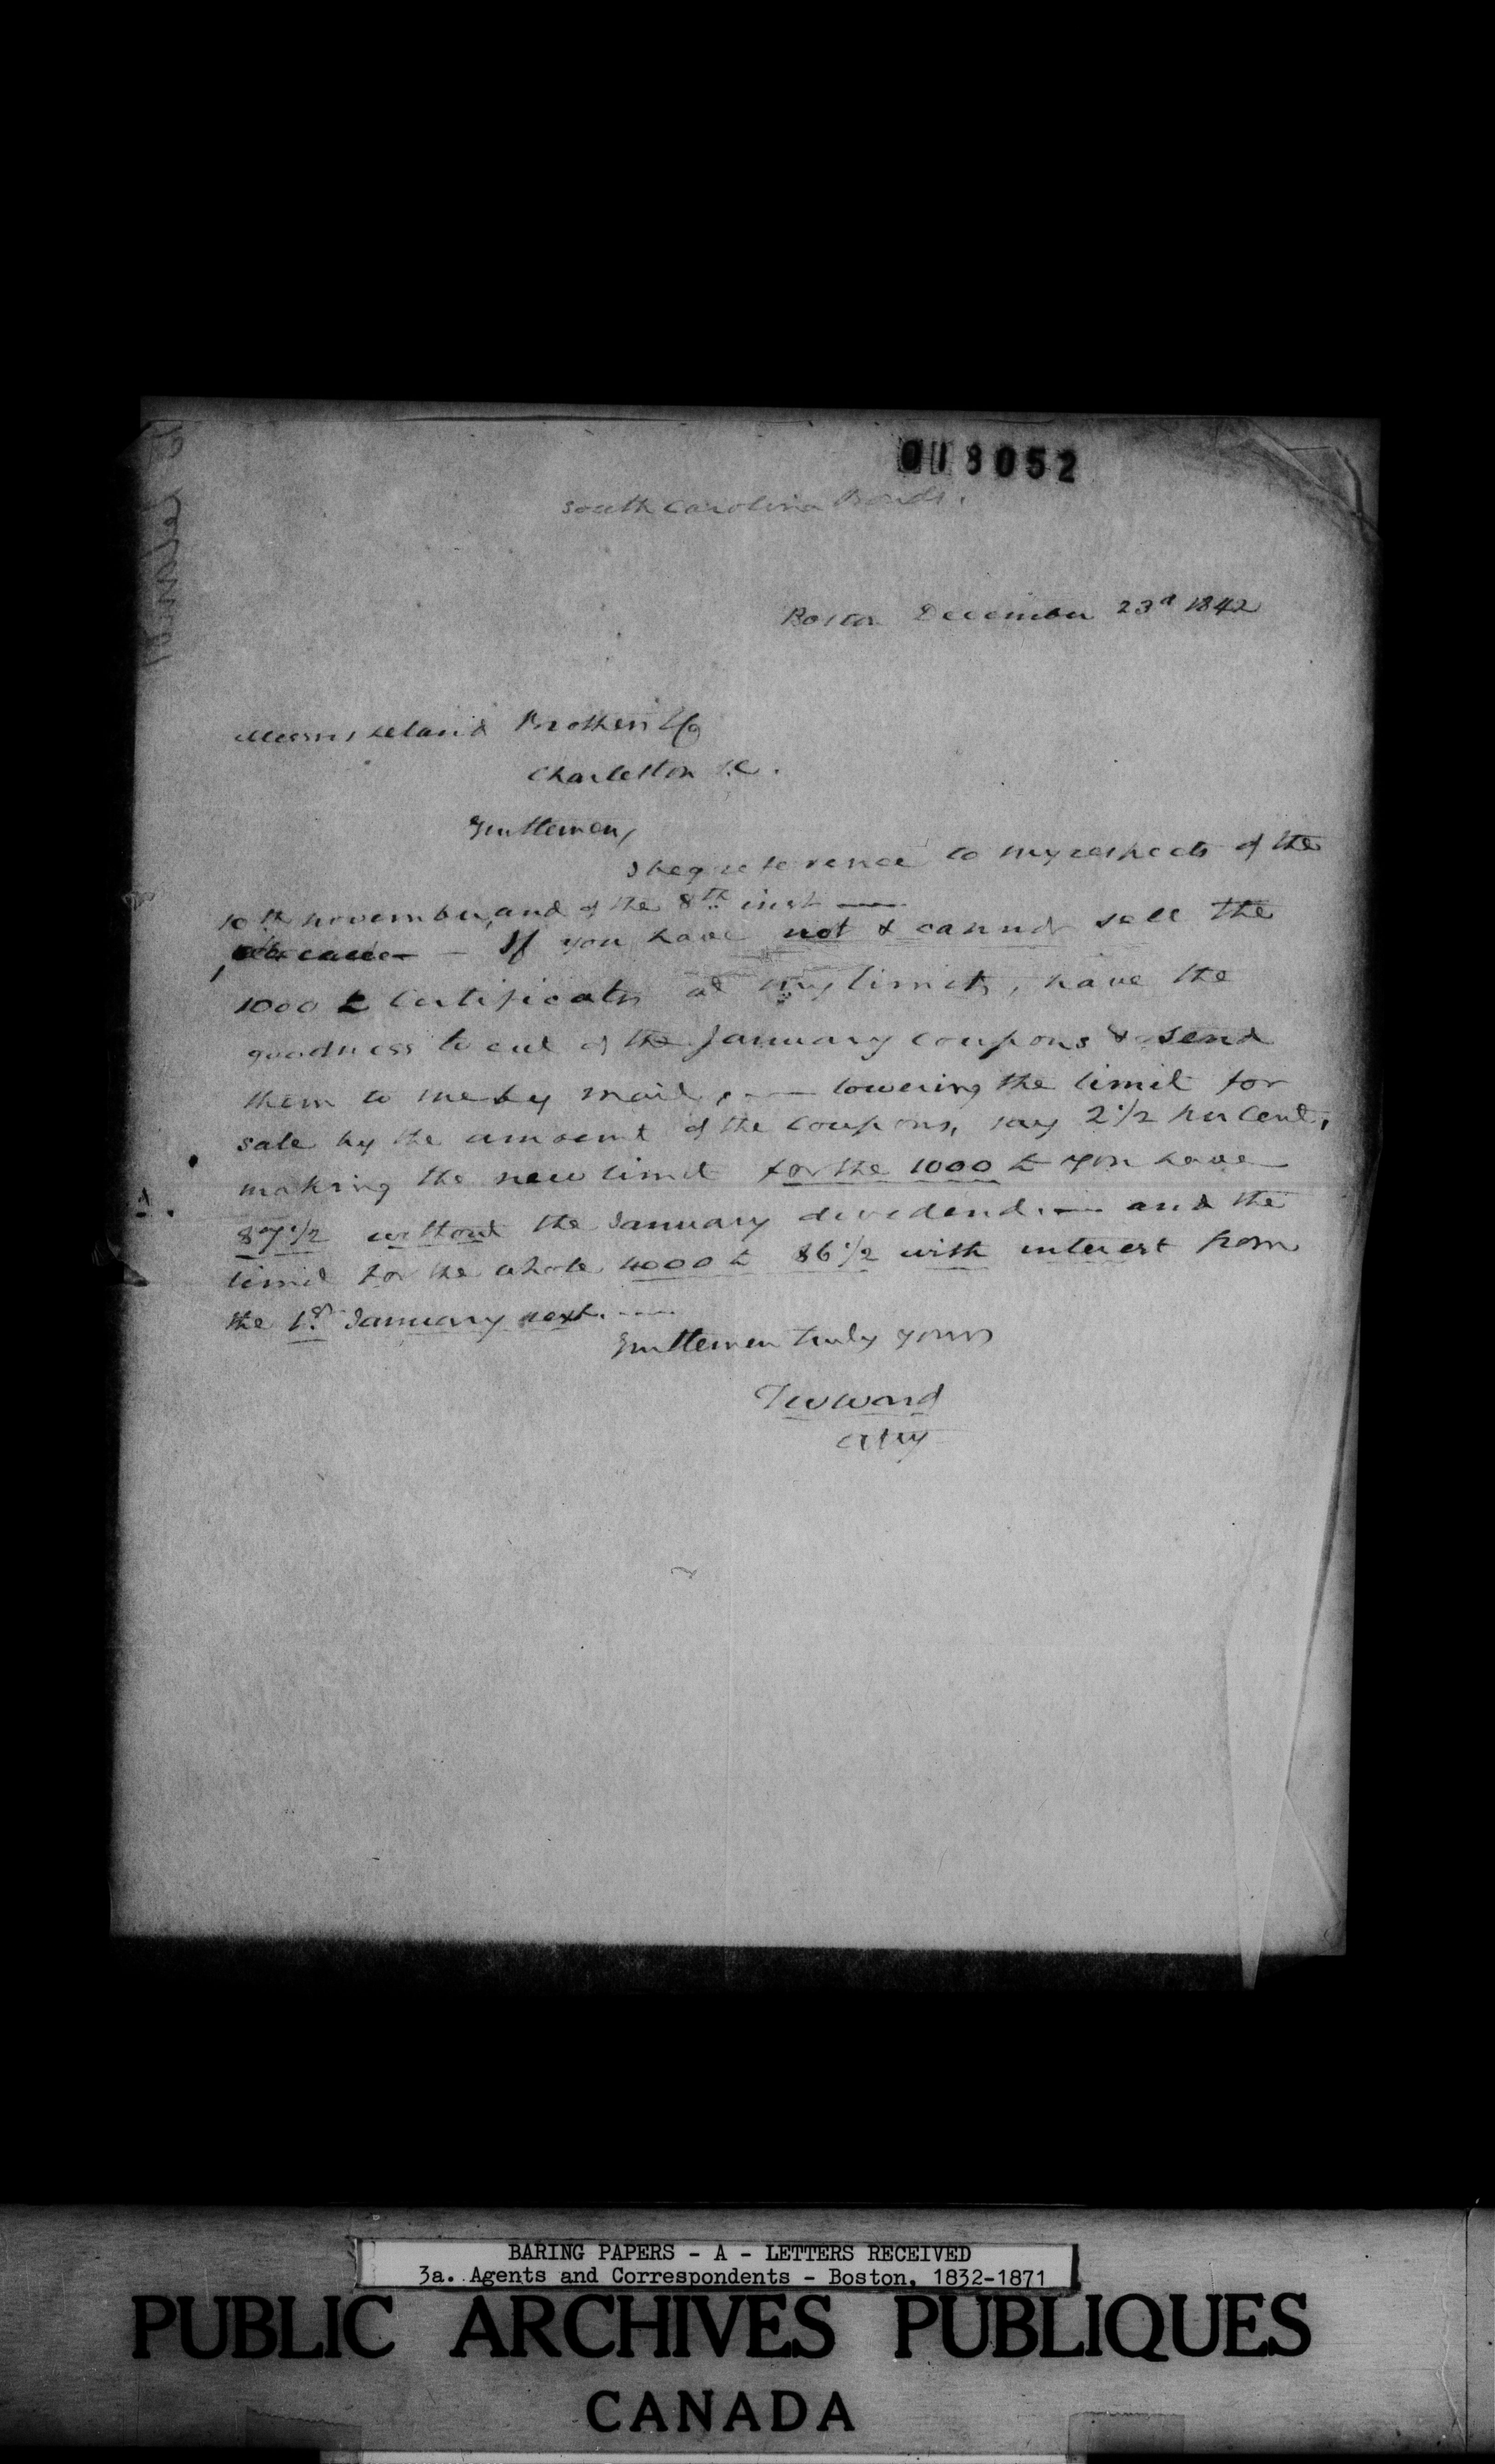 013052
South Carolina Bonds.
Boston December 23d 1842
Messrs Leland Brothers & Co
Charleston S.C.
Gentlemen,
I beg reference to my respects of the
10th November, and of the 8th inst —
— If you have not & cannot sell the
1000 £ Certificates at my limits, have the
goodness to cut of the January coupons & send
them to me by mail, — lowering the limit for
sale by the amount of the coupons, say 2 1/2 per Cent,
making the new limit for the 1000 £ you have
87 1/2 without the January dividend. — and the
limit for the whole 4000 £ 86 1/2 with interest from
the 1st January next. —
Gentlemen truly yours
TWWard
Atty
BARING PAPERS - A - LETTERS RECEIVED
3a. Agents and Correspondents - Boston, 1832-1871
PUBLIC ARCHIVES PUBLIQUES
CANADA